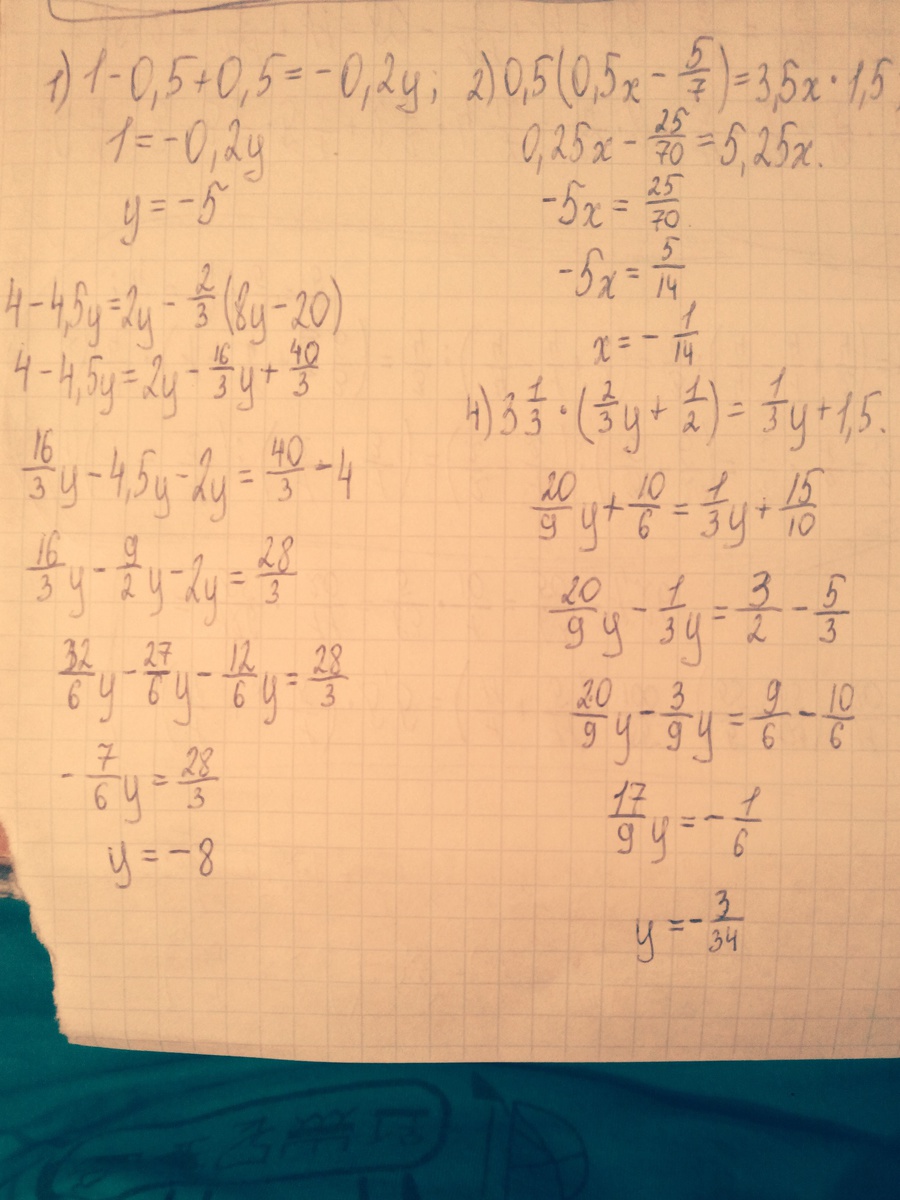 1) 1-0,5+0,5=-0,2y;
1=-0,2y
y=-5
4-4,5y=2y-2/3(8y-20)
4-4,5y=2y-16/3y+40/3
16/3y-4,5y-2y=40/3-4
16/3y-9/2y-2y=28/3
32/6y-27/6y-12/6y=28/3
-7/6y=28/3
y=-8
2) 0,5(0,5x-5/7)=3,5x·1,5,
0,25x-25/70=5,25x.
-5x=25/70
-5x=5/14
x=-1/14
4) 3 1/3·(2/3y+1/2)=1/3y+1,5.
20/9y+10/6=1/3y+15/10
20/9y-1/3y=3/2-5/3
20/9y-3/9y=9/6-10/6
17/9y=-1/6
y=-3/34